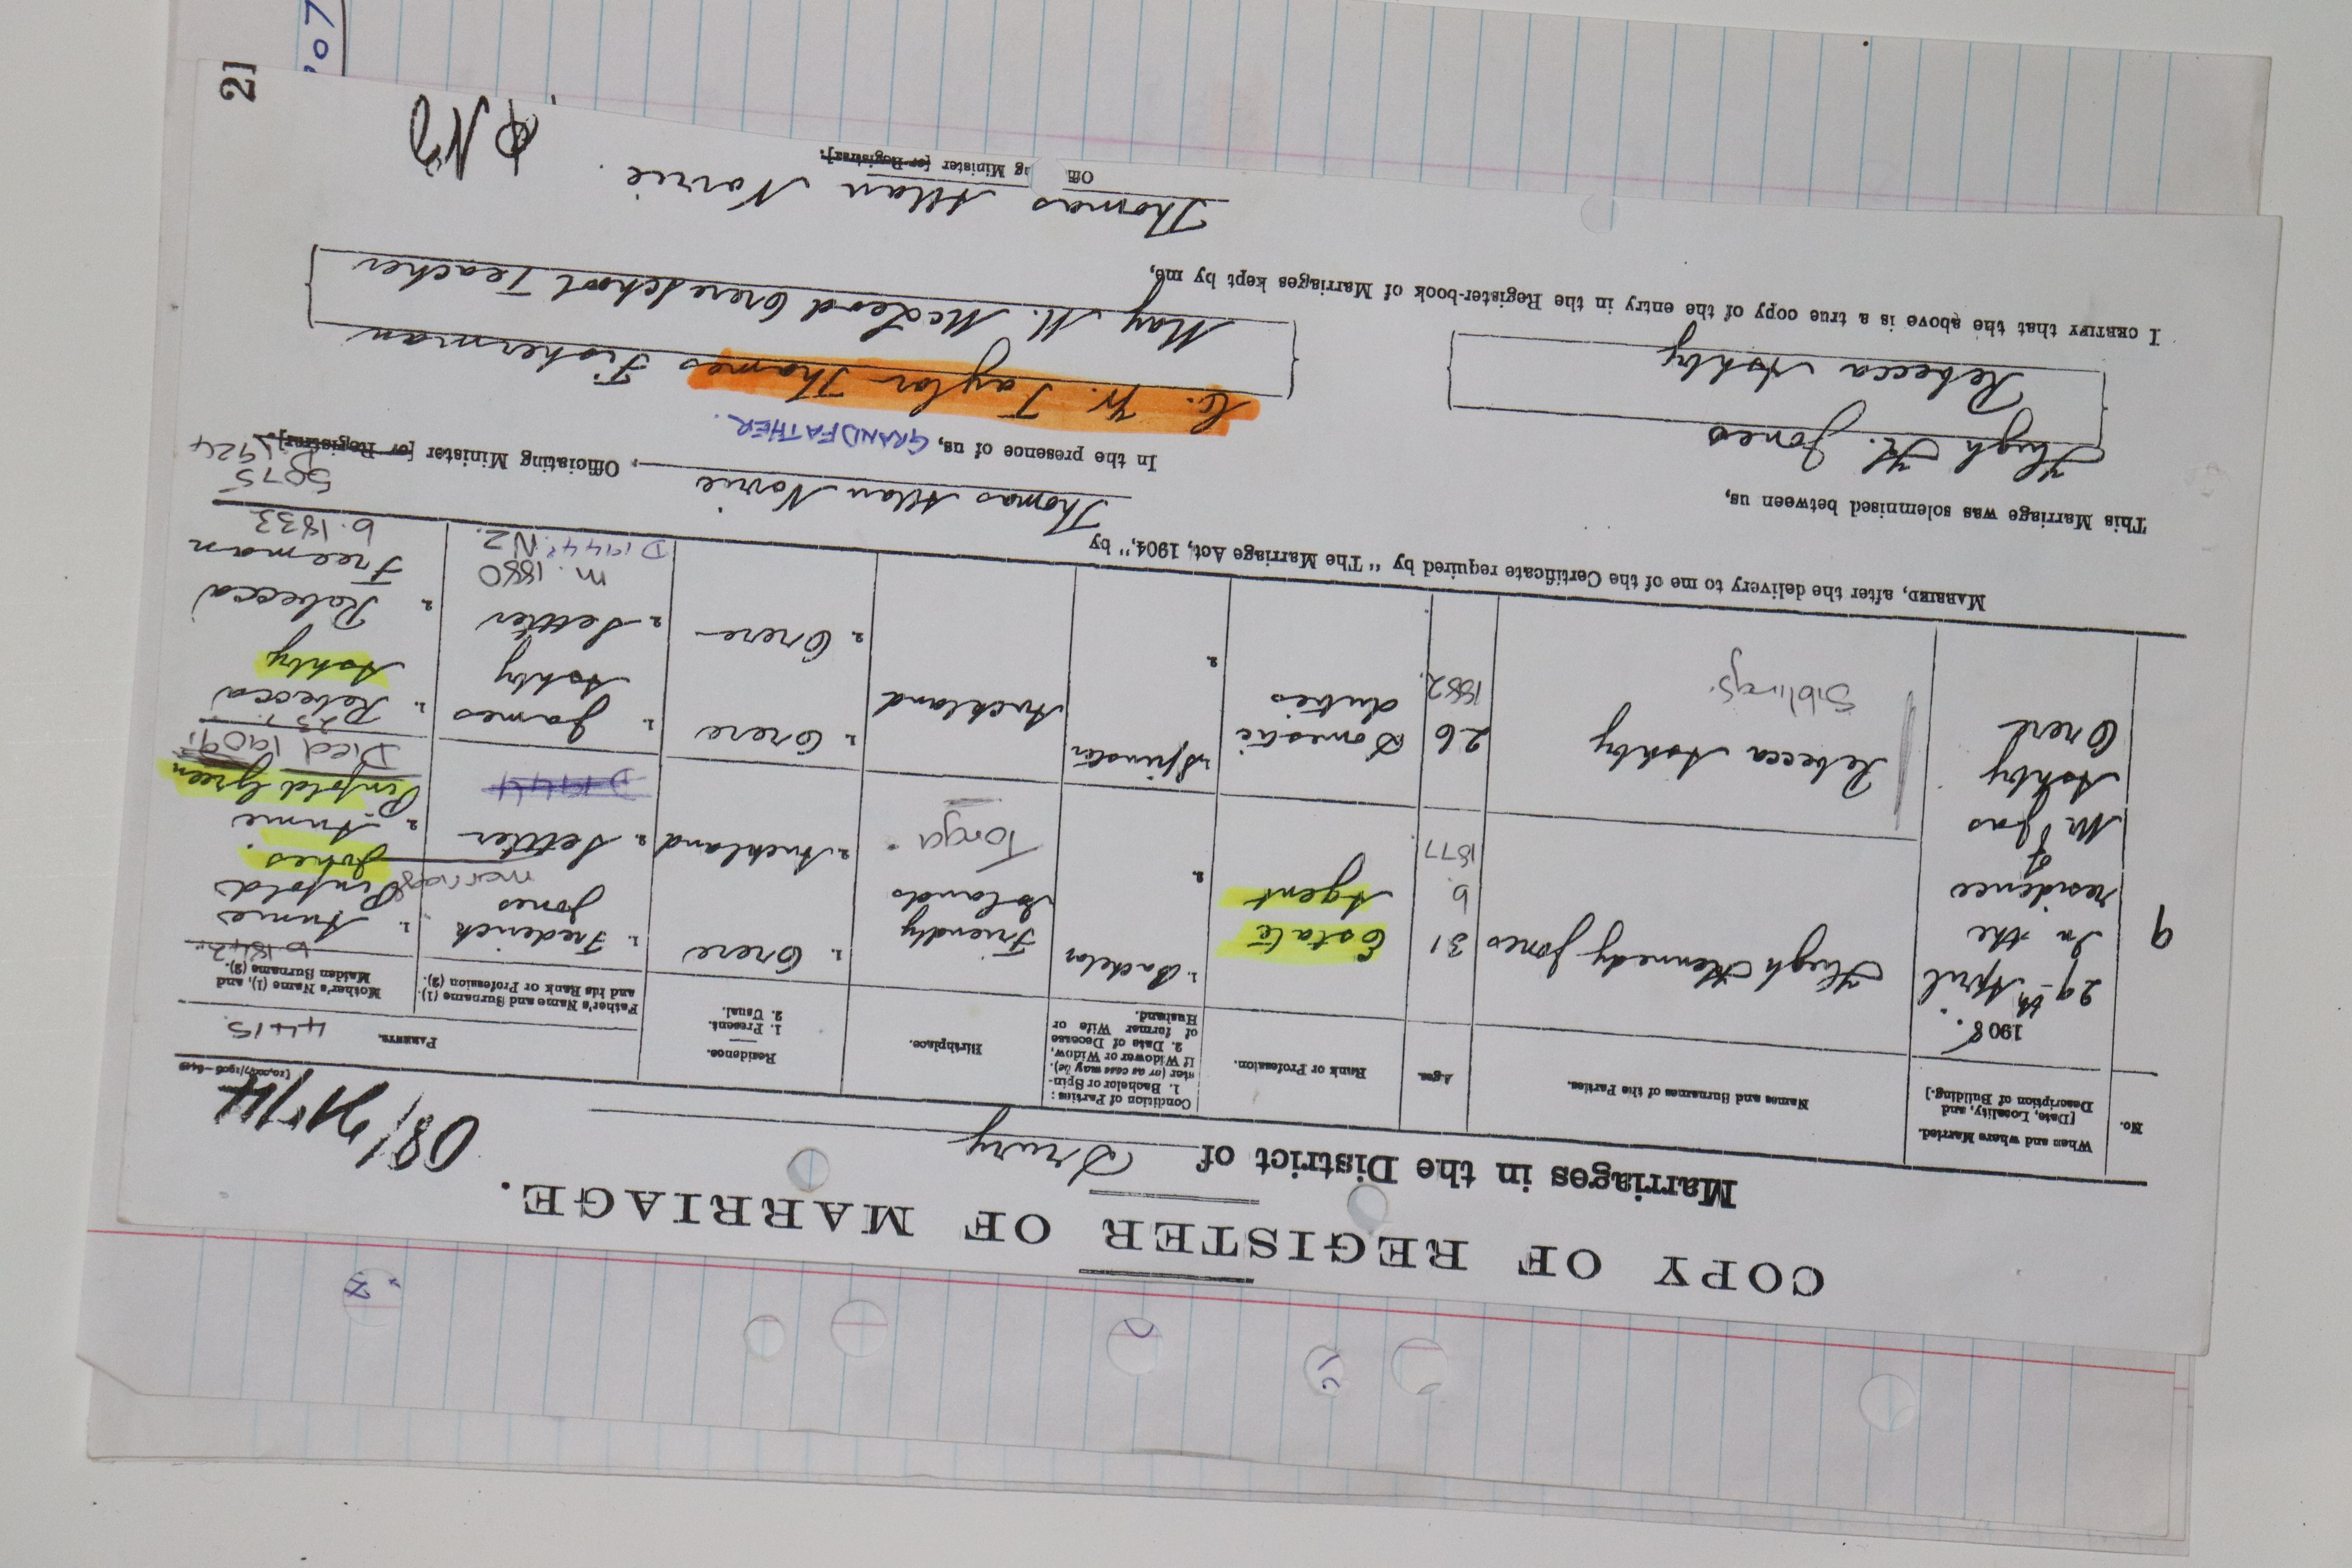 COPY OF REGISTER OF MARRIAGE.
Marriages in the District of Drury
[10,000/7/1906—6419
No.
When and where Married.
[Date, Locality, and
Description of Building.]
Names and Surnames of the Parties.
Ages.
Rank or Profession.
Condition of Parties:
1. Bachelor or Spin-
ster (or as case may be).
If Widower or Widow,
2. Date of Decease
of former Wife or
Husband.
Birthplace.
Residence.
1. Present.
2. Usual.
PARENTS.
4415.
Father's Name and Surname (1),
and his Rank or Profession (2).
Mother's Name (1), and
Maiden Surname (2).
9
1908.
29th April
In the
residence
of
Mr Jas
Ashby
Orere
Hugh Kennedy Jones
31
b
1877
Estate
Agent
1. Bachelor
2.
Friendly
Islands
Tonga.
1. Orere
2. Auckland
1. Frederick
Jones
2. Settler
D 1944
b 1842.
1. Annie
Pinfold
Jones.
marriage
2. Annie
Pinfold Green
Died 1909.
Rebecca Ashby
Siblings.
26
1882.
Domestic
duties
1. Spinster
2.
Auckland
1. Orere
2. Orere
1. James
Ashby
2. Settler
m. 1880
D 1944. NZ.
1. Rebecca
Ashby
2. Rebecca
Freeman
b. 1833
5075
D 1924
MARRIED, after the delivery to me of the Certificate required by "The Marriage Act, 1904," by
Thomas Allan Norrie, Officiating Minister [or Registrar].
This Marriage was solemnised between us,
Hugh K. Jones
Rebecca Ashby
In the presence of us, GRANDFATHER.
C. W. Taylor Thames Fisherman
May M. McLeod Orere School Teacher
I CERTIFY that the above is a true copy of the entry in the Register-book of Marriages kept by me,
Thomas Allan Norrie.
Offi ng Minister [or Registrar].
2]